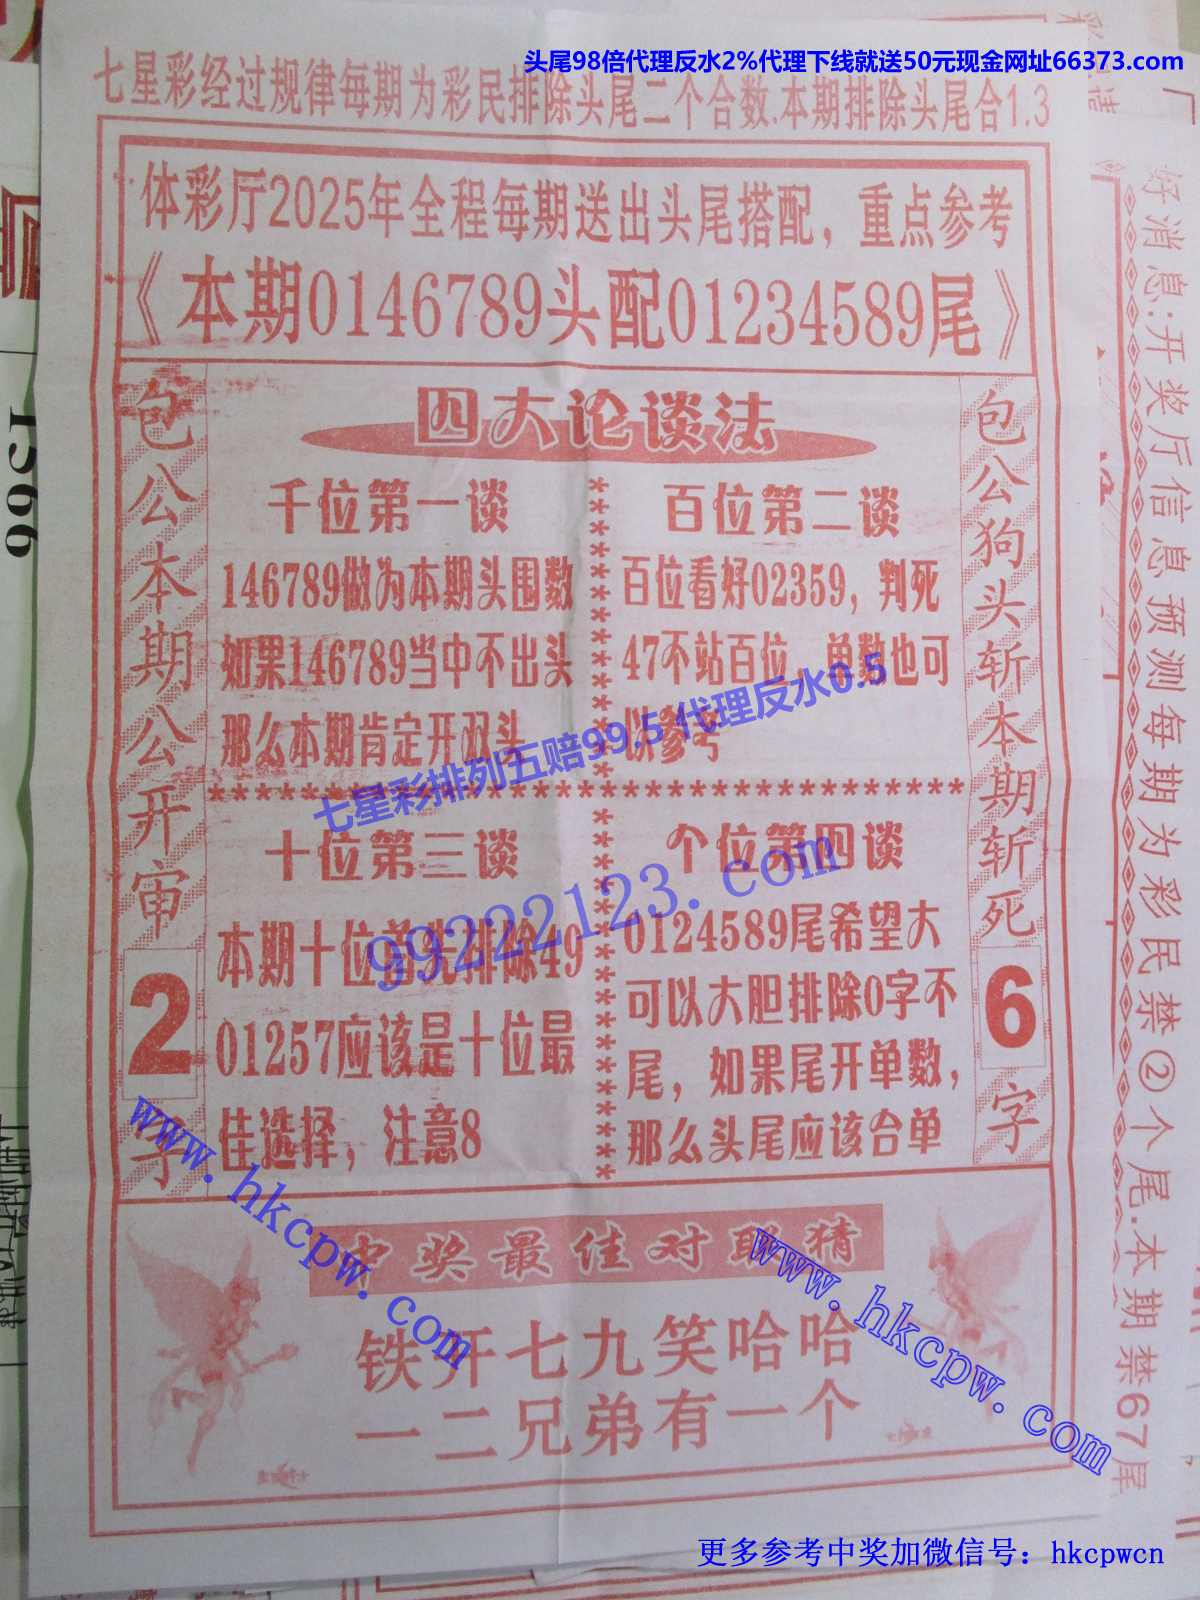 头尾98倍代理反水2%代理下线就送50元现金网址66373.com
七星彩经过规律每期为彩民排除头尾二个合数.本期排除头尾合1.3
体彩厅2025年全程每期送出头尾搭配，重点参考
《本期0146789头配01234589尾》
包公本期公开审2字
四大论谈法
千位第一谈
146789做为本期头围数
如果146789当中不出头
那么本期肯定开双头
百位第二谈
百位看好02359，判死
47不站百位，单数也可
以参考
七星彩排列五赔99.5 代理反水0.5
十位第三谈
本期十位首先排除49
01257应该是十位最
佳选择，注意8
个位第四谈
0124589尾希望大
可以大胆排除0字不
尾，如果尾开单数，
那么头尾应该合单
99222123.com
包公狗头斩本期斩死6字
www.hkcpw.com
www.hkcpw.com
中奖最佳对联猜
铁开七九笑哈哈
一二兄弟有一个
好消息:开奖厅信息预测每期为彩民禁②个尾.本期禁67尾
1566
更多参考中奖加微信号：hkcpwcn